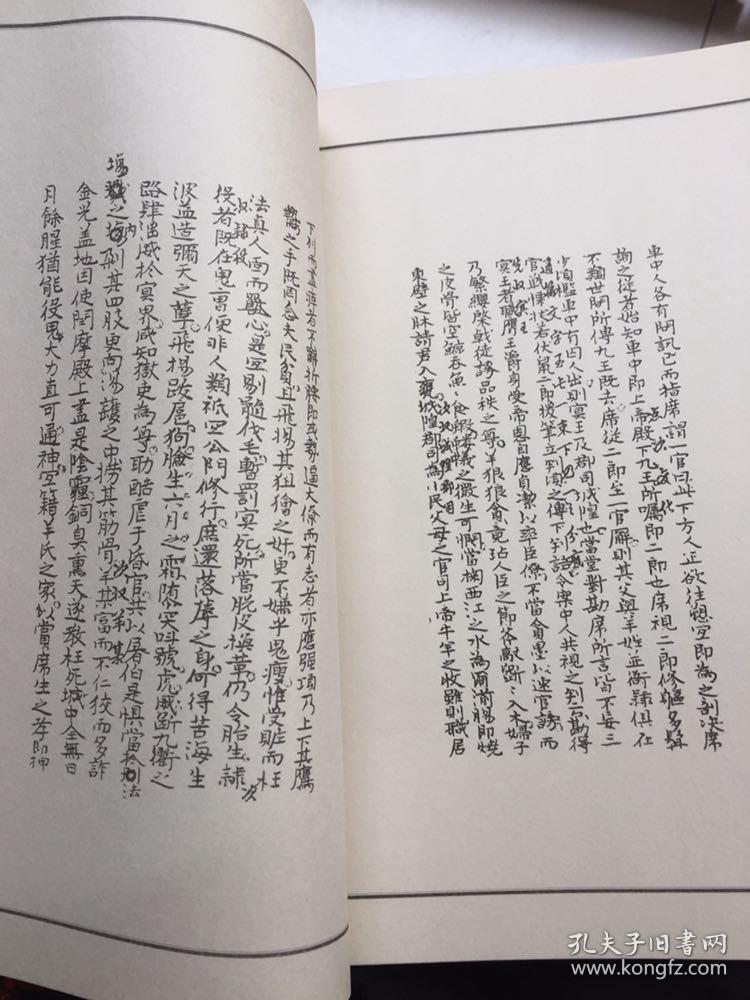 車中人各有問訊已而指席謂一官曰此下方人正欲往愬宜即為之剖決席
詢之從者始知車中即上帝殿下九王所囑即二郎也席視二郎修軀多髯
不類世間所傳九王既去席從二郎至一官廨則其父與羊姓並衙隸俱在
少頃檻車中有囚人出則冥王及郡司城隍也當堂對勘席所言皆不妄三
官戰慄狀若伏鼠二郎援筆立判頃之傳下判語令案中人共視之判云勘得
先叙冥王
冥王者職膺王爵身受帝恩自應貞潔以率臣僚不當貪墨以速官謗而
乃繁纓棨戟徒誇品秩之尊羊狠狼貪竟玷人臣之節斧敲斲斲入木婦子
次叙城隍郡司
之皮骨皆空鯨吞魚魚食蝦螻蟻之微生可憫當掬西江之水為爾湔腸即燒
東壁之牀請君入甕城隍郡司為小民父母之官司上帝牛羊之牧雖則職居
下列而盡瘁者不辭折腰即或勢逼大僚而有志者亦應强項乃上下其鷹
鷙之手既罔念夫民貧且飛揚其狙獪之奸更不嫌乎鬼瘦惟受贓而枉
法真人面而獸心是宜剔髓伐毛暫罰冥死所當脫皮換革仍令胎生隸
次叙役
役者既在鬼曹便非人類祇宜公門修行庶還落蓐之身何得苦海生
波益造彌天之孽飛揚跋扈狗臉生六月之霜隳突叫號虎威斷九衢之
路肆淫威於冥界咸知獄吏為尊助酷虐于昏官共以屠伯是懼當於法
次叙羊某
場之內剁其四肢更向湯鑊之中撈其筋骨羊某富而不仁狡而多詐
金光蓋地因使閻摩殿上盡是陰霾銅臭熏天遂教枉死城中全無日
月餘腥猶能役鬼大力直可通神宜籍羊氏之家以賞席生之孝即押
孔夫子旧書网
www.kongfz.com